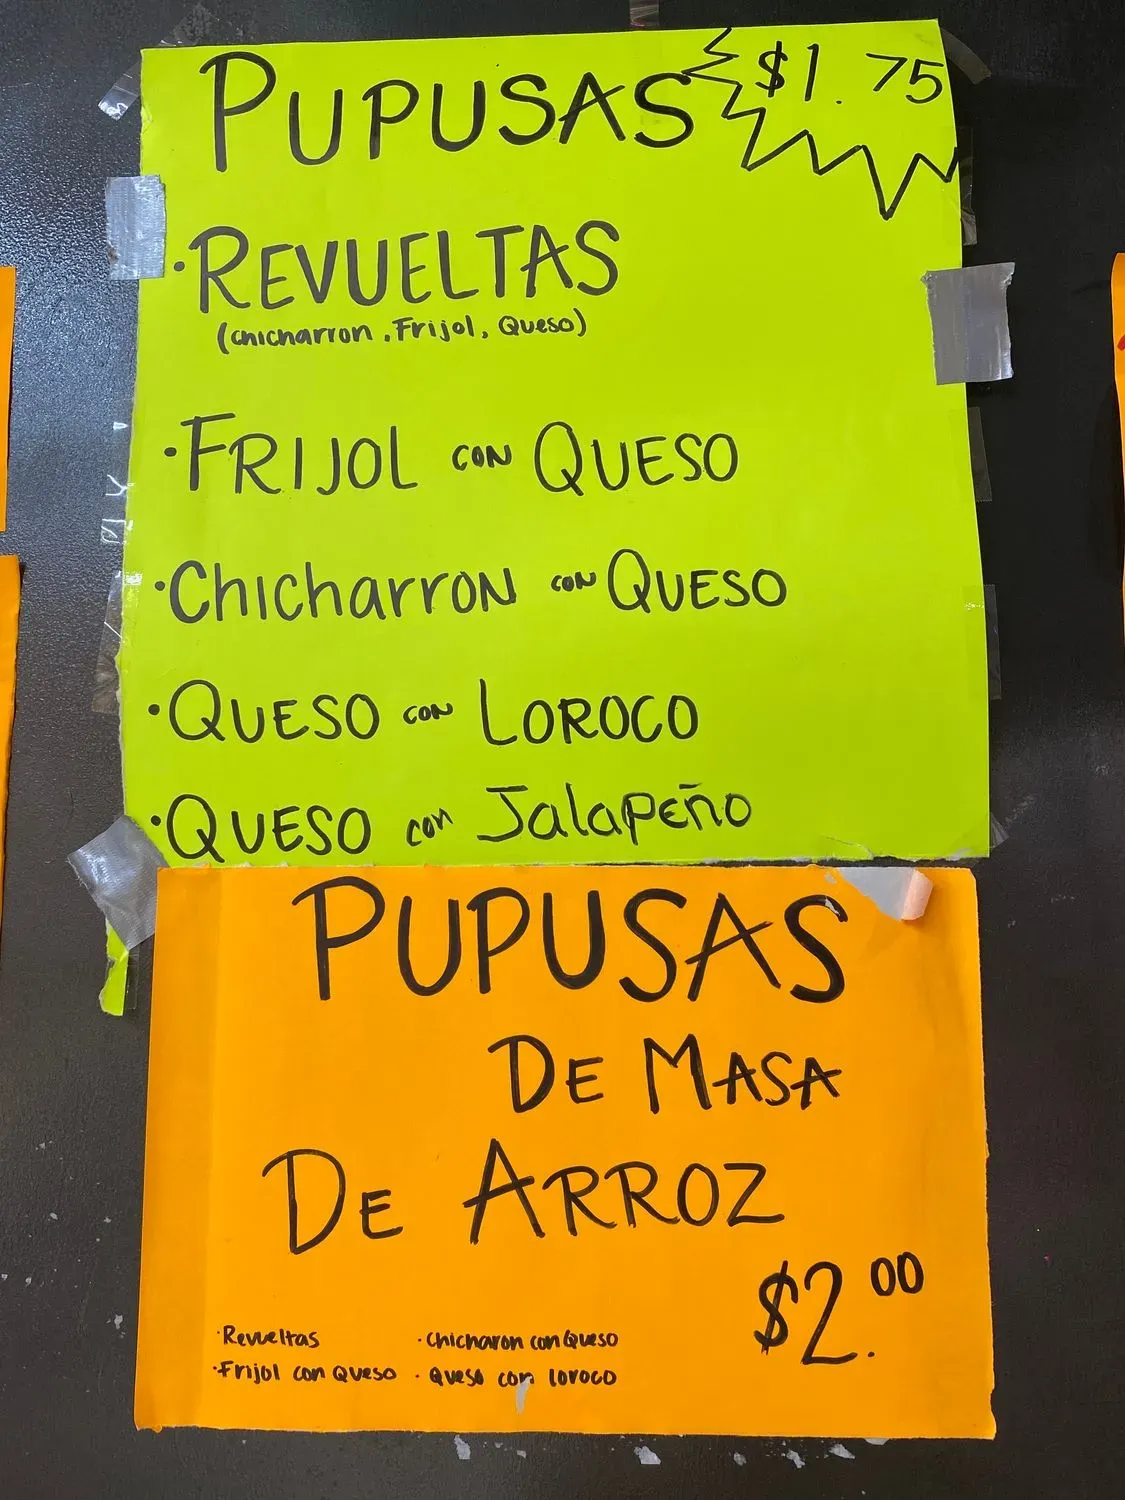 PUPUSAS $1.75
·REVUELTAS
(chicharron, Frijol, Queso)
·FRIJOL CON QUESO
·Chicharron CON QUESO
·QUESO CON LOROCO
·QUESO con Jalapeño
PUPUSAS
DE MASA
DE ARROZ
$2.00
·Revueltas ·chicharon con Queso
·Frijol con Queso ·Queso con loroco